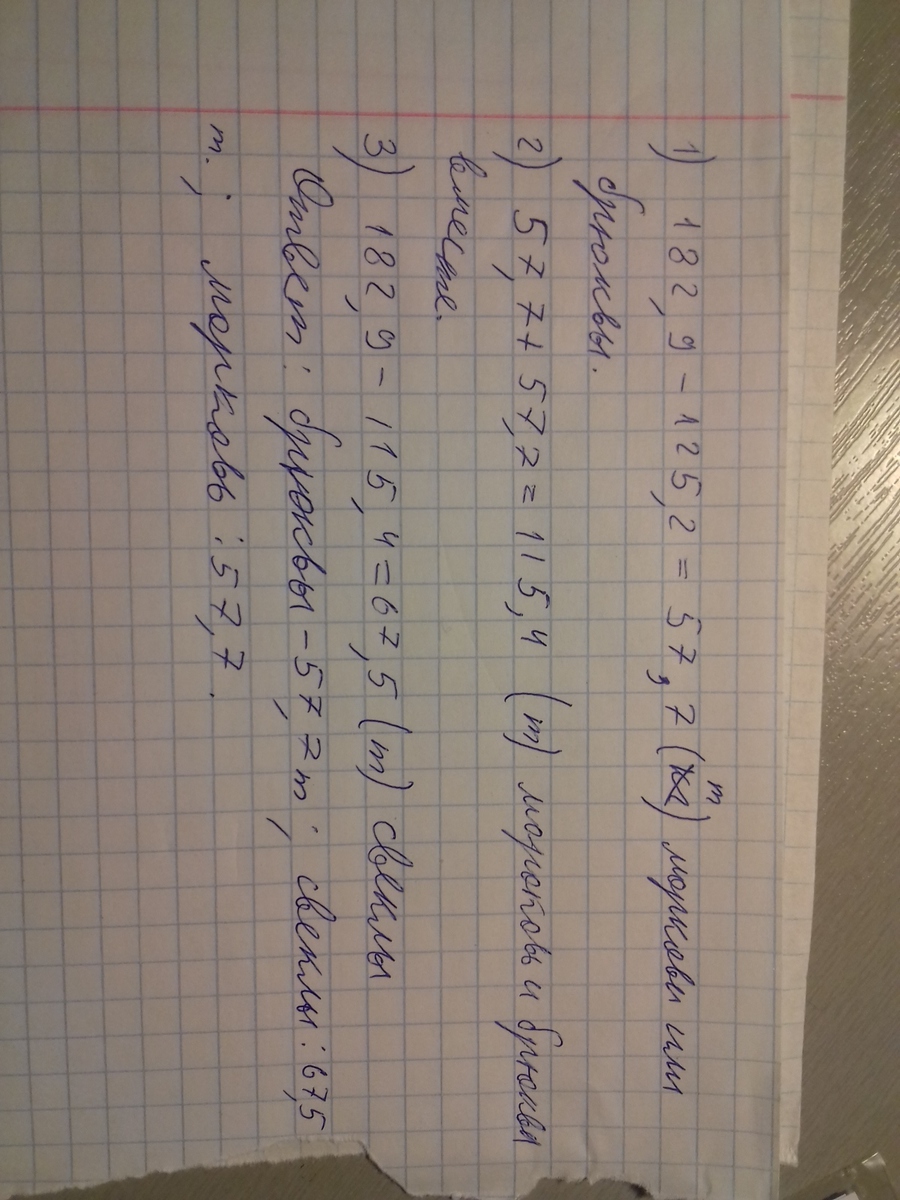 1) 182,9 - 125,2 = 57,7 (т) моркови или
брюквы.
2) 57,7 + 57,7 = 115,4 (т) морковь и брюквы
вместе.
3) 182,9 - 115,4 = 67,5 (т) свеклы
Ответ: брюквы - 57,7 т; свеклы: 67,5
т.; морковь: 57,7.